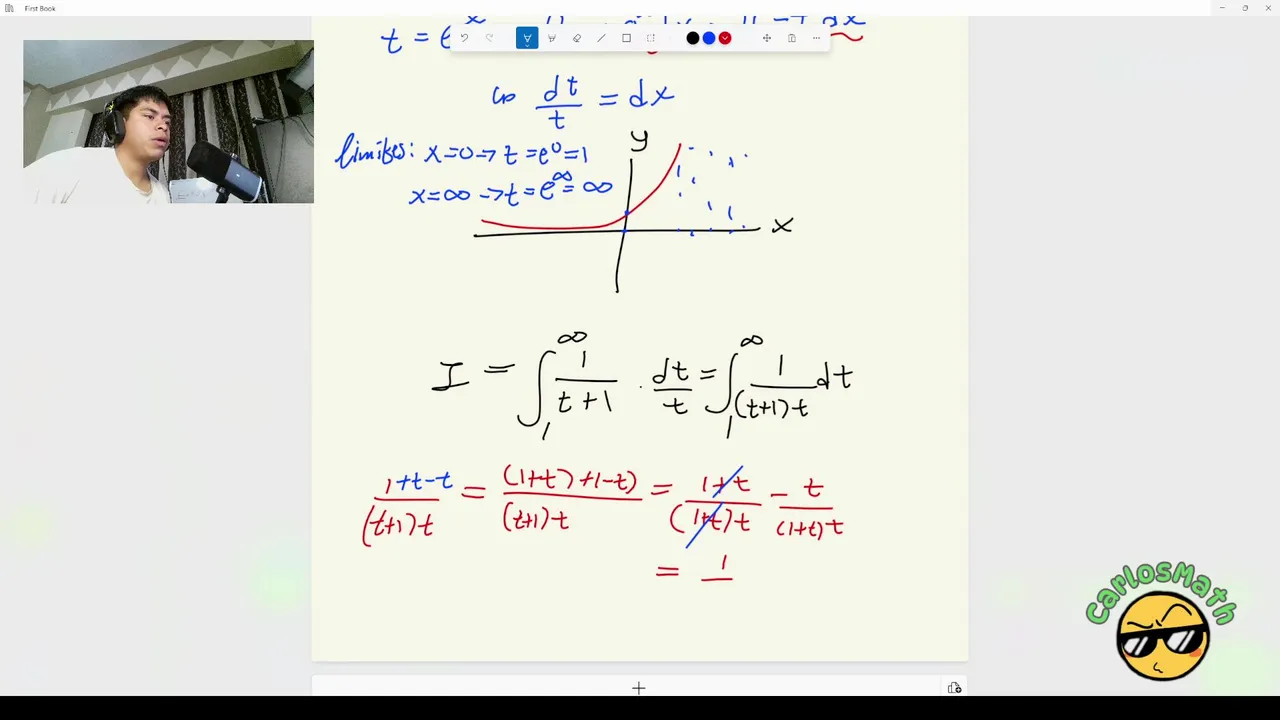 First Book
t = e
dt/t = dx
limites: x=0 → t = e^0 = 1
x=∞ → t = e^∞ = ∞
y
x
I = ∫_1^∞ 1/(t+1) · dt/t = ∫_1^∞ 1/((t+1)t) dt
(1+t-t)/((t+1)t) = ((1+t)+1-t)/((t+1)t) = (1+t)/((1+t)t) - t/((1+t)t)
= 1
CarlosMath